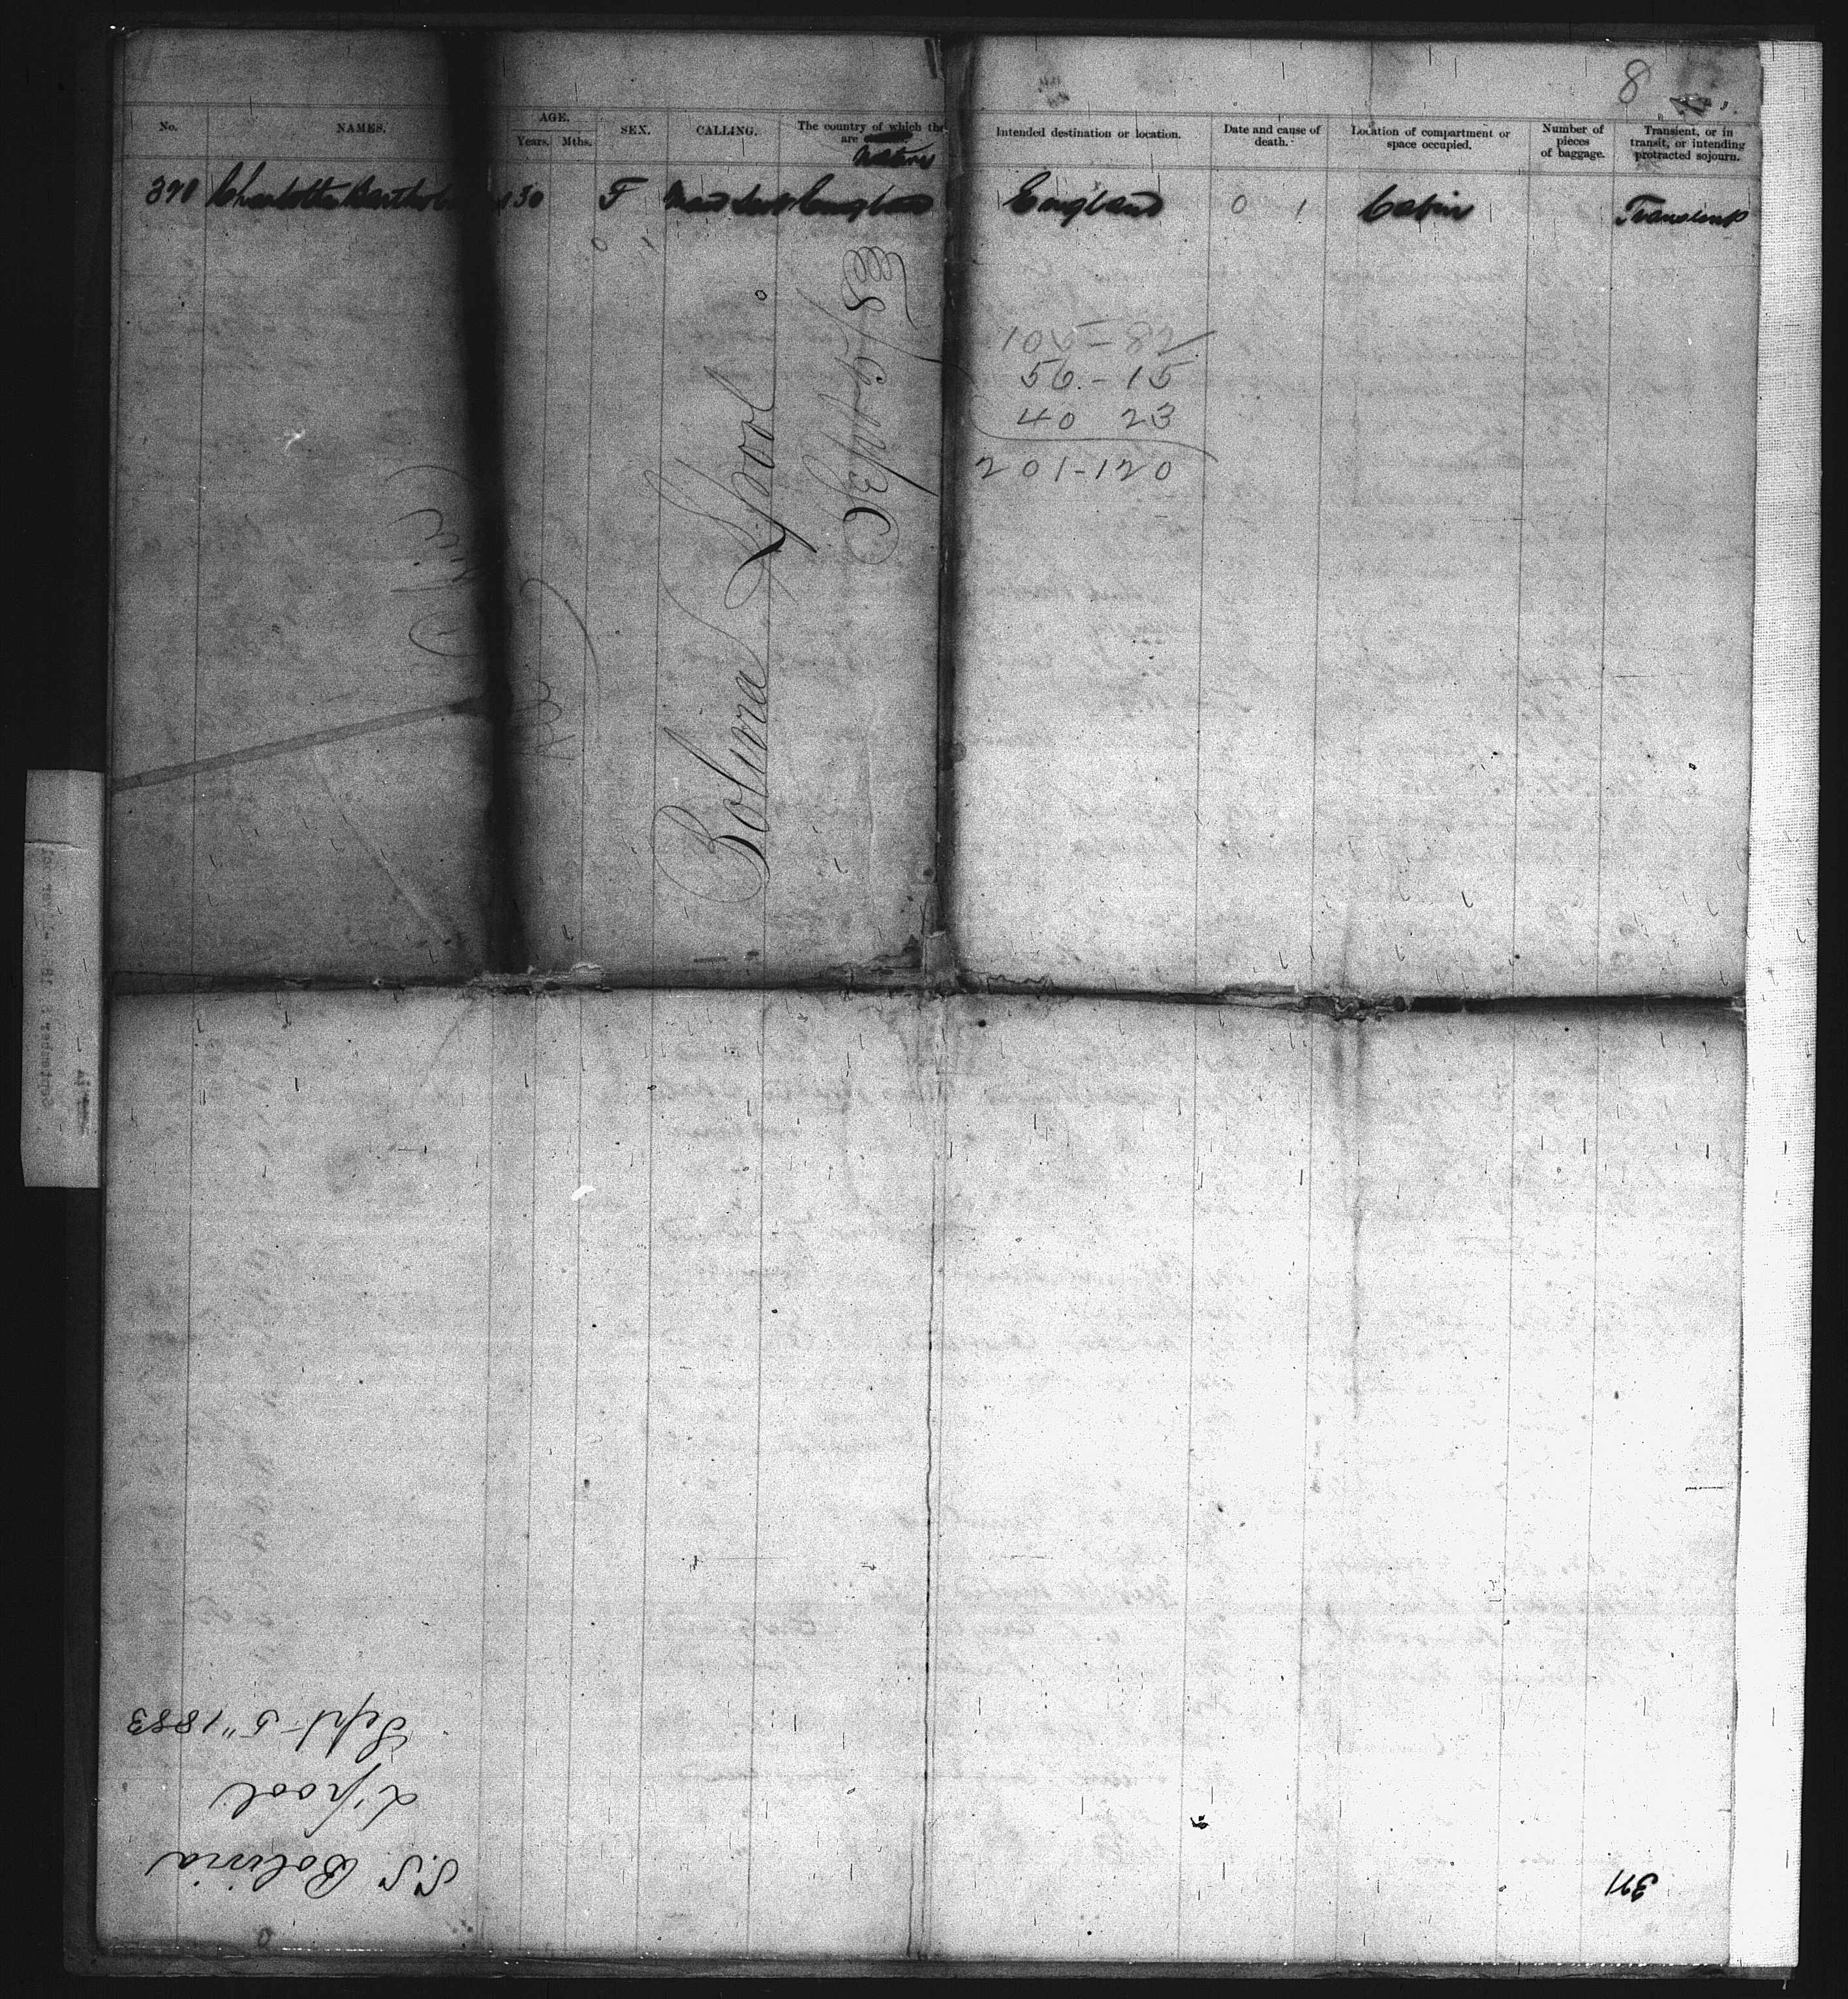 8
No.
NAMES.
AGE.
Years. Mths.
SEX.
CALLING.
The country of which the
are
Natives
Intended destination or location.
Date and cause of
death.
Location of compartment or
space occupied.
Number of
pieces
of baggage.
Transient, or in
transit, or intending
protracted sojourn.
370 Charlotte 30 F England England 0 1 Cabin Transient
0 1
Bolivia L'pool
Sept 5/83
105 - 82
56 - 15
40 23
201 - 120
September 5
S.S. Bolivia
L'pool
Sept 5" 1883
371